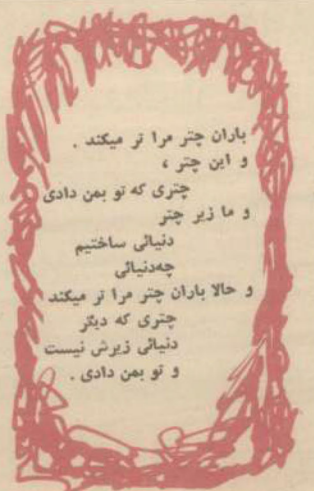 باران چتر مرا تر میکند .
و این چتر ،
چتری که تو بمن دادی
و ما زیر چتر
دنیائی ساختیم
چه‌دنیائی
و حالا باران چتر مرا تر میکند
چتری که دیگر
دنیائی زیرش نیست
و تو بمن دادی .